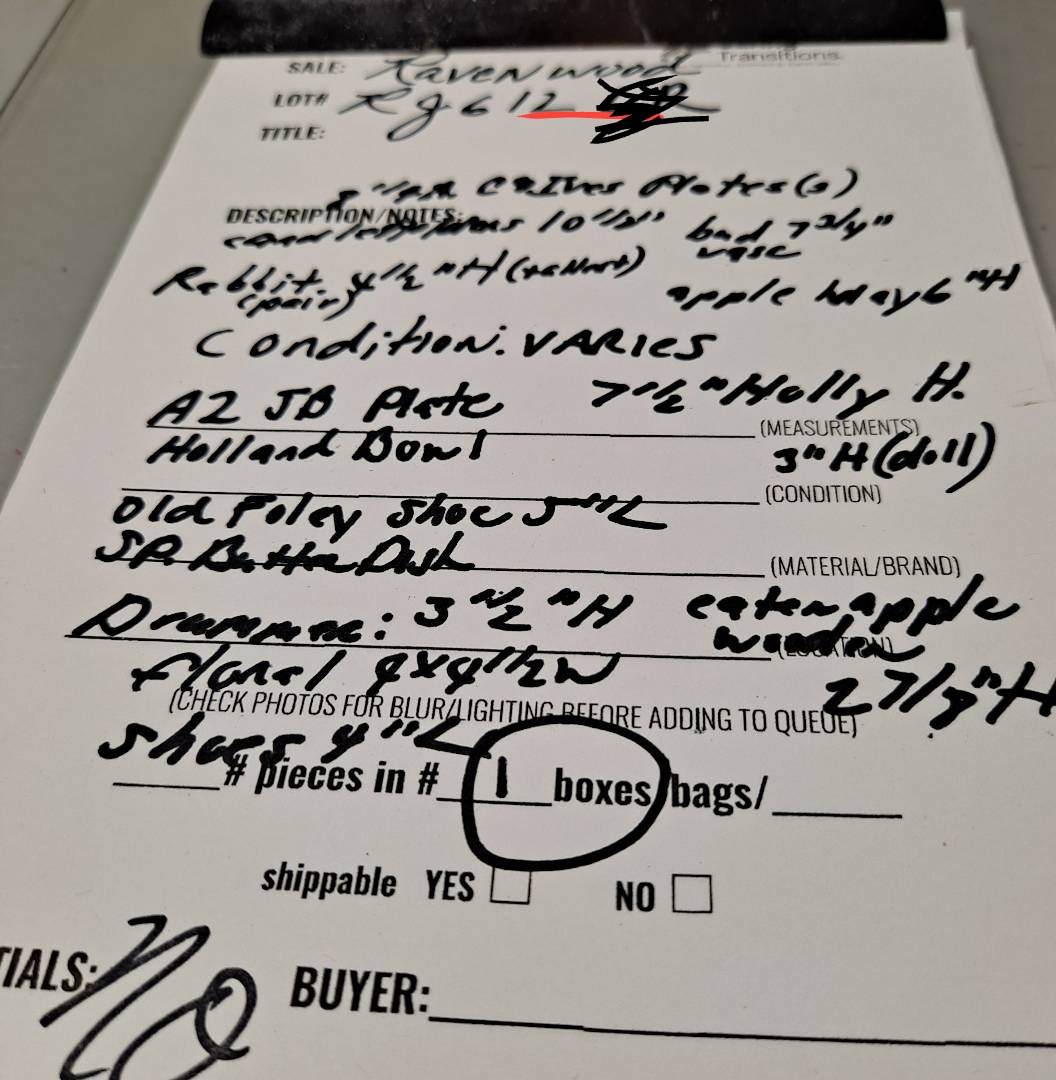 Transitions.
SALE: Ravenwood
LOT# RJ612
TITLE:
Plates(s)
DESCRIPTION/NOTES: 10"1/2" bud 7 3/4"
vase
Rabbit 4"1/2 "H (tallest) apple 6"H
(pair)
Condition: VARIES
A2 JB Plate 7"1/2 "Holly H.
(MEASUREMENTS)
Holland Bowl 3"H (doll)
(CONDITION)
Old Foley Shoe 5""L
SP. Butter Dish
(MATERIAL/BRAND)
3"1/2 "H eaten apple
wooden (LOCATION)
floral 4x4"1/2w 2 7/8"H
(CHECK PHOTOS FOR BLUR/LIGHTING BEFORE ADDING TO QUEUE)
shoes 4"L
# pieces in # 1 boxes/bags/
shippable YES NO
TIALS: BUYER: